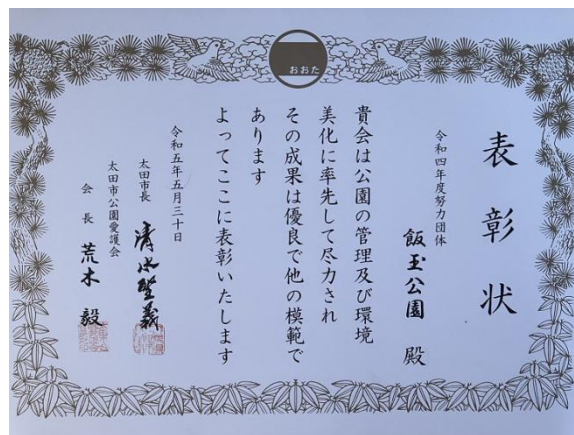 おおた
表彰状
令和四年度努力団体
飯玉公園 殿
貴会は公園の管理及び環境
美化に率先して尽力され
その成果は優良で他の模範で
あります
よってここに表彰いたします
令和五年五月三十日
太田市長 清水聖義
太田市公園愛護会
会長 荒木毅